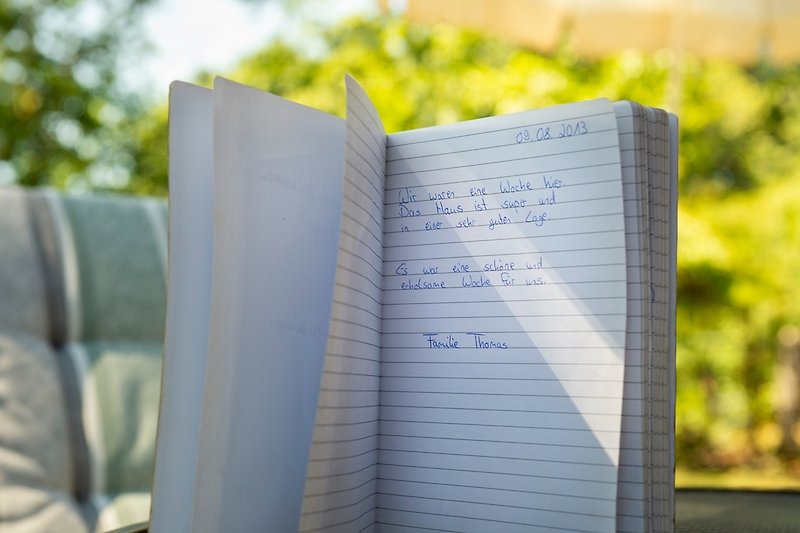 09.08.2013
Wir waren eine Woche hier.
Das Haus ist super und
in einer sehr guten Lage.
Es war eine schöne und
erholsame Woche für uns.
Familie Thomas